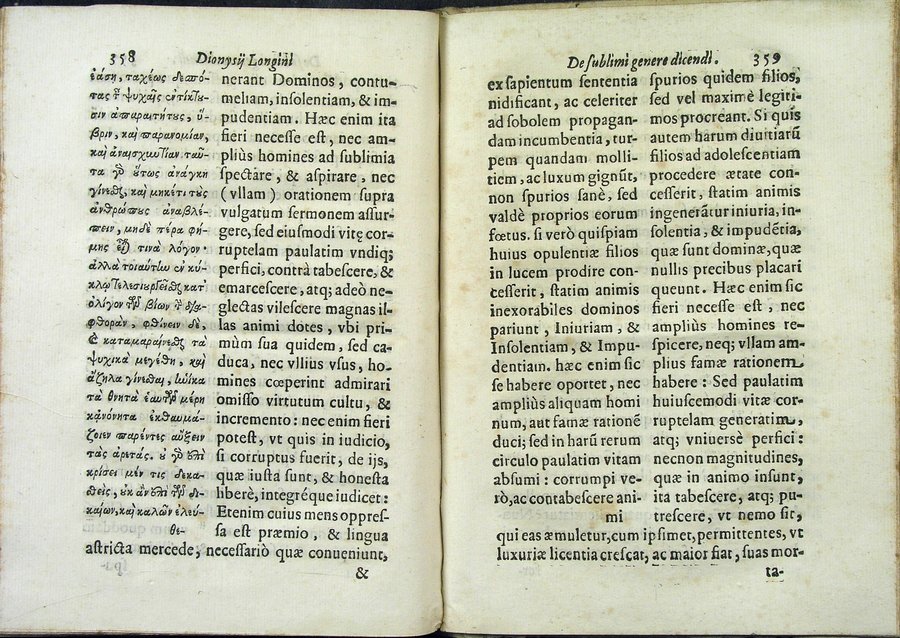 358 Dionysij Longini
ἐάσῃ, ταχέως δεσπό-
τας ταῖς ψυχαῖς ἐντίκτου-
σιν ἀπαραιτήτους, ὕ-
βριν, καὶ παρανομίαν,
καὶ ἀναισχυντίαν ταῦ-
τα γὸ οὕτως ἀνάγκη
γίνεσθαι, καὶ μηκέτι τοὺς
ἀνθρώπους ἀναβλέ-
πειν, μηδὲ πέρα φή-
μης εἶναι τινὰ λόγον·
ἀλλὰ τοιαύτων ἐν κύ-
κλῳ τελεσιουργεῖσθαι κατ'
ὀλίγον τῶν βίων τ διαφ-
φθορὰν, φθίνειν δὲ,
& καταμαραίνεσθαι τὰ
ψυχικὰ μεγέθη, καὶ
ἄζηλα γίνεσθαι, ἡνίκα
τὰ θνητὰ ἑαυτῶν μέρη
κἀνόνητα ἐκθαυμά-
ζοιεν παρέντες αὔξειν
τὰς ἀρετάς. οὐ γὸ ἐπὶ
κρίσει μέν τις δεκα-
θεὶς, οὐκ ἂν ἐπὶ τῶν δι-
καίων, καὶ καλῶν ἐλευ-
θε-
nerant Dominos, contu-
meliam, insolentiam, & im-
pudentiam. Hæc enim ita
fieri necesse est, nec am-
plius homines ad sublimia
spectare, & aspirare, nec
(vllam) orationem supra
vulgatum sermonem assur-
gere, sed eiusmodi vitę cor-
ruptelam paulatim vndiq;
perfici, contrà tabescere, &
emarcescere, atq; adeò ne-
glectas vilescere magnas il-
las animi dotes, vbi pri-
mùm sua quidem, sed ca-
duca, nec vllius vsus, ho-
mines cœperint admirari
omisso virtutum cultu, &
incremento: nec enim fieri
potest, vt quis in iudicio,
si corruptus fuerit, de ijs,
quæ iusta sunt, & honesta
liberè, integréque iudicet:
Etenim cuius mens oppres-
sa est præmio, & lingua
astricta mercede, necessariò quæ conueniunt,
&
De sublimi genere dicendi. 359
ex sapientum sententia
nidificant, ac celeriter
ad sobolem propagan-
dam incumbentia, tur-
pem quandam molli-
tiem, ac luxum gignũt,
non spurios sanè, sed
valdè proprios eorum
fœtus. si verò quispiam
huius opulentiæ filios
in lucem prodire con-
cesserit, statim animis
inexorabiles dominos
pariunt, Iniuriam, &
Insolentiam, & Impu-
dentiam. hæc enim sic
se habere oportet, nec
ampliùs aliquam homi
num, aut famæ rationẽ
duci; sed in harũ rerum
circulo paulatim vitam
absumi: corrumpi ve-
rò, ac contabescere ani-
mi
spurios quidem filios,
sed vel maximè legiti-
mos procreant. Si quis
autem harum diuitiarũ
filios ad adolescentiam
procedere ætate con-
cesserit, statim animis
ingenerãtur iniuria, in-
solentia, & impudẽtia,
quæ sunt dominæ, quæ
nullis precibus placari
queunt. Hæc enim sic
fieri necesse est, nec
ampliùs homines re-
spicere, neq; vllam am-
plius famæ rationem
habere: Sed paulatim
huiuscemodi vitæ cor-
ruptelam generatim,
atq; vniuersè perfici:
necnon magnitudines,
quæ in animo insunt,
ita tabescere, atq; pu-
trescere, vt nemo sit,
qui eas æmuletur, cum ipsimet, permittentes, vt
luxuriæ licentia crescat, ac maior fiat, suas mor-
ta-